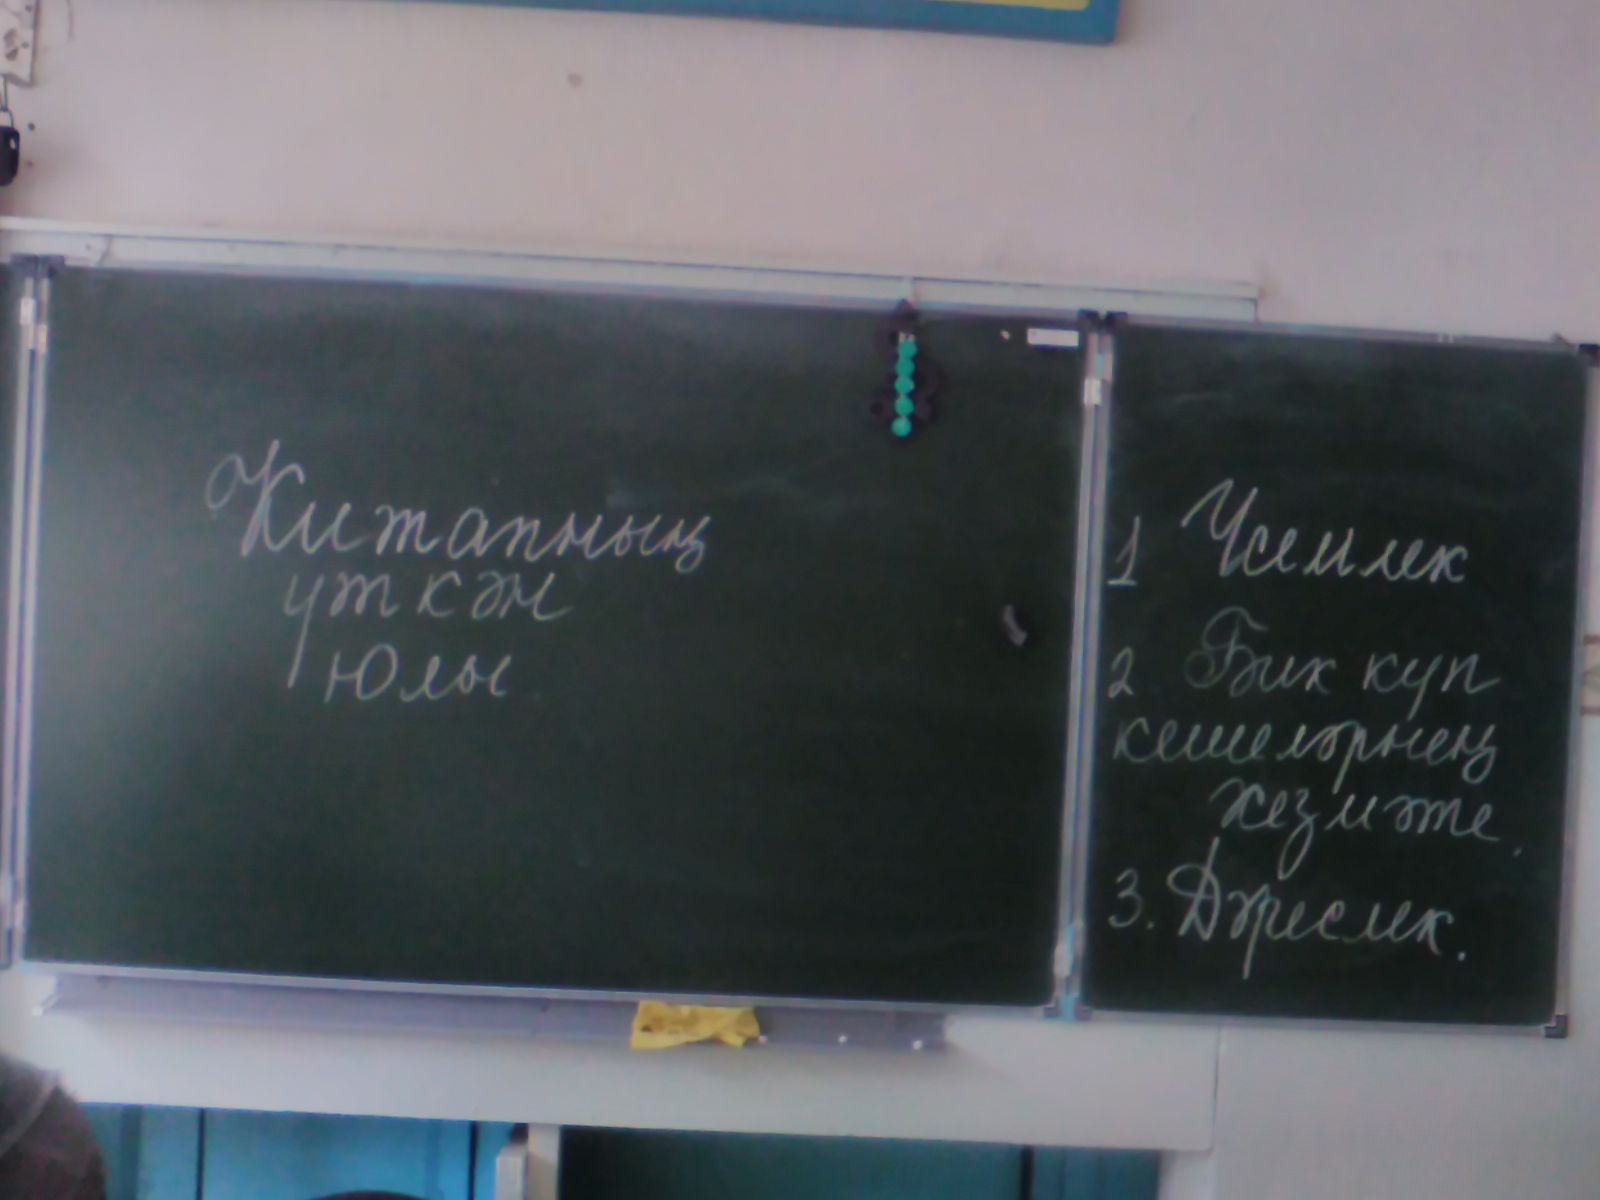 Китапның
үткән
юлы
1 Үсемлек
2. Бик күп
кешеләрнең
хезмәте.
3. Дәреслек.